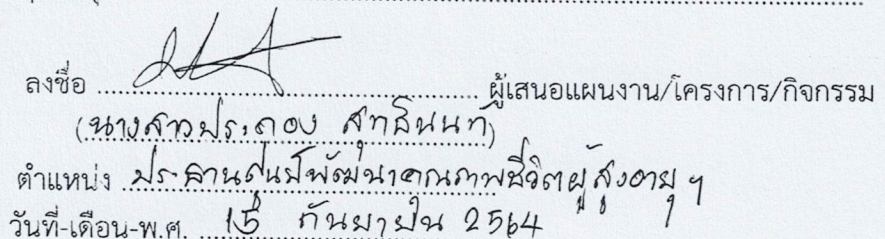 ลงชื่อ ................................ ผู้เสนอแผนงาน/โครงการ/กิจกรรม
(นางสาวประคอง สุทธินนท์)
ตำแหน่ง ประธานศูนย์พัฒนาคุณภาพชีวิตผู้สูงอายุ ฯ
วันที่-เดือน-พ.ศ. 15 กันยายน 2564